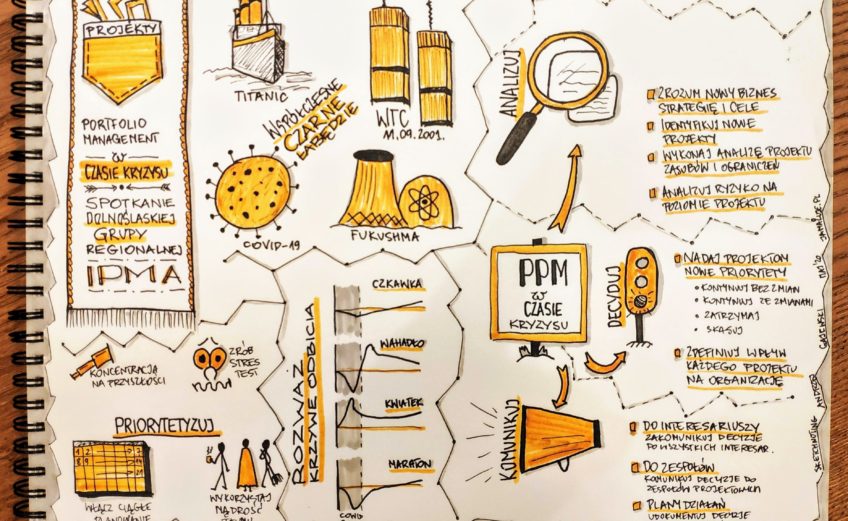 PROJEKTY
PORTFOLIO
MANAGEMENT
W
CZASIE KRYZYSU
SPOTKANIE
DOLNOŚLASKIEJ
GRUPY
REGIONALNEJ
IPMA
TITANIC
WTC
11.09.2001.
WSPÓŁCZESNE
CZARNE
ŁABĘDZIE
COVID-19
FUKUSHMA
KONCENTRACJA
NA PRZYSZŁOŚCI
ZRÓB
STRES
TEST
PRIORYTETYZUJ
1 2
WŁĄCZ CIĄGŁE
PLANOWANIE
WYKORZYSTAJ
MĄDROŚĆ
ROZWAŻ
KRZYWE ODBICIA
CZKAWKA
WAHADŁO
KWIATEK
MARATON
COVID
ANALIZUJ
ZROZUM NOWY BIZNES
STRATEGIĘ I CELE
IDENTYFIKUJ NOWE
PROJEKTY
WYKONAJ ANALIZĘ PROJEKTU
ZASOBÓW I OGRANICZEŃ
ANALIZUJ RYZYKO NA
POZIOMIE PROJEKTU
PPM
W
CZASIE
KRYZYSU
DECYDUJ
NADAJ PROJEKTOM
NOWE PRIORYTETY
• KONTYNUUJ BEZ ZMIAN
• KONTYNUUJ ZE ZMIANAMI
• ZATRZYMAJ
• SKASUJ
ZDEFINIUJ WPŁYW
KAŻDEGO PROJEKTU
NA ORGANIZACJĘ
KOMUNIKUJ
DO INTERESARIUSZY
ZAKOMUNIKUJ DECYZJE
DO WSZYSTKICH INTERESAR.
DO ZESPOŁÓW
KOMUNIKUJ DECYZJE DO
ZESPOŁÓW PROJEKTOWYCH
PLANY DZIAŁAŃ
UDOKUMENTUJ DECYZJE
SKETCHNOTING ANDRZEJ